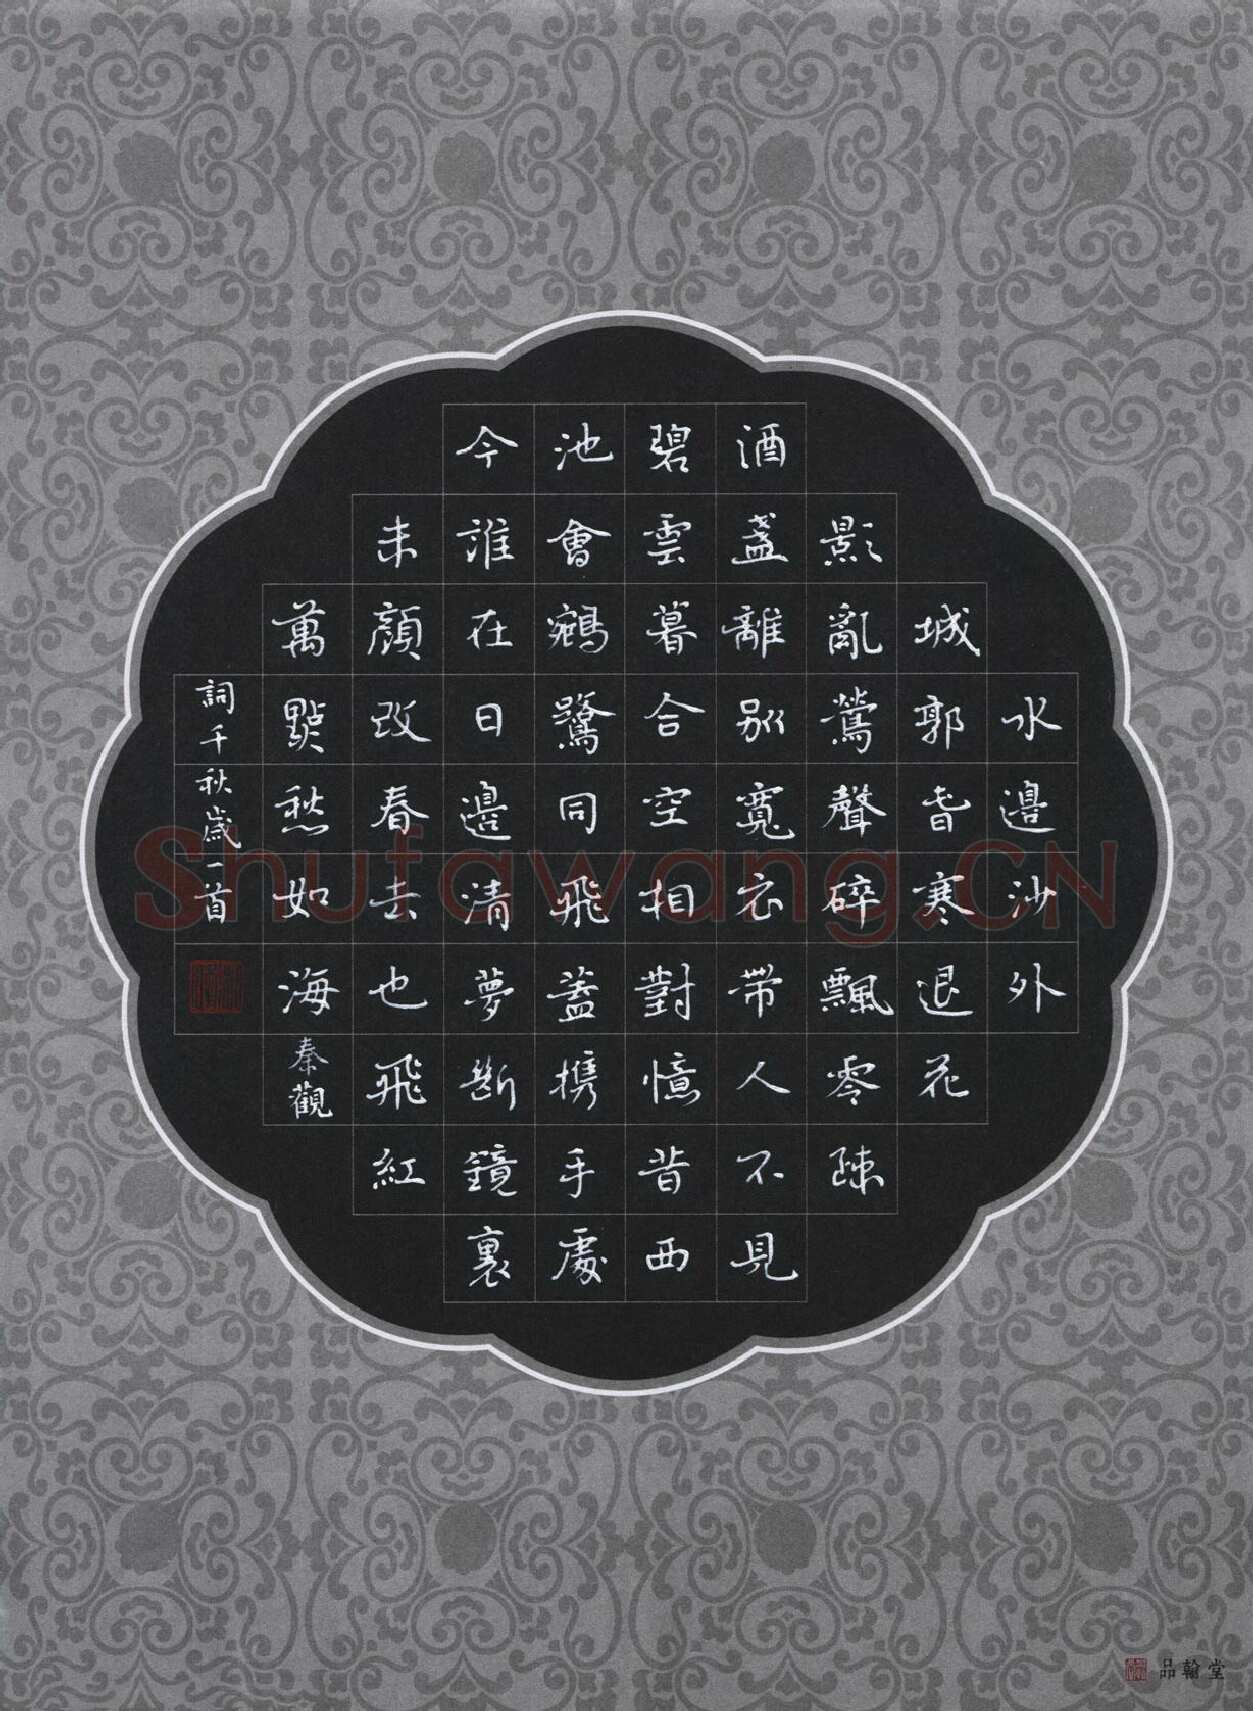 水邊沙外
城郭春寒退花
影亂鶯聲碎飄零疎
酒盞離別寬衣帶人不見
碧雲暮合空相對憶昔西
池會鵷鷺同飛蓋携手處
今誰在日邊清夢斷鏡裏
朱顏改春去也飛紅
萬點愁如海秦觀
詞千秋歲一首
品翰堂
Shufawang.CN